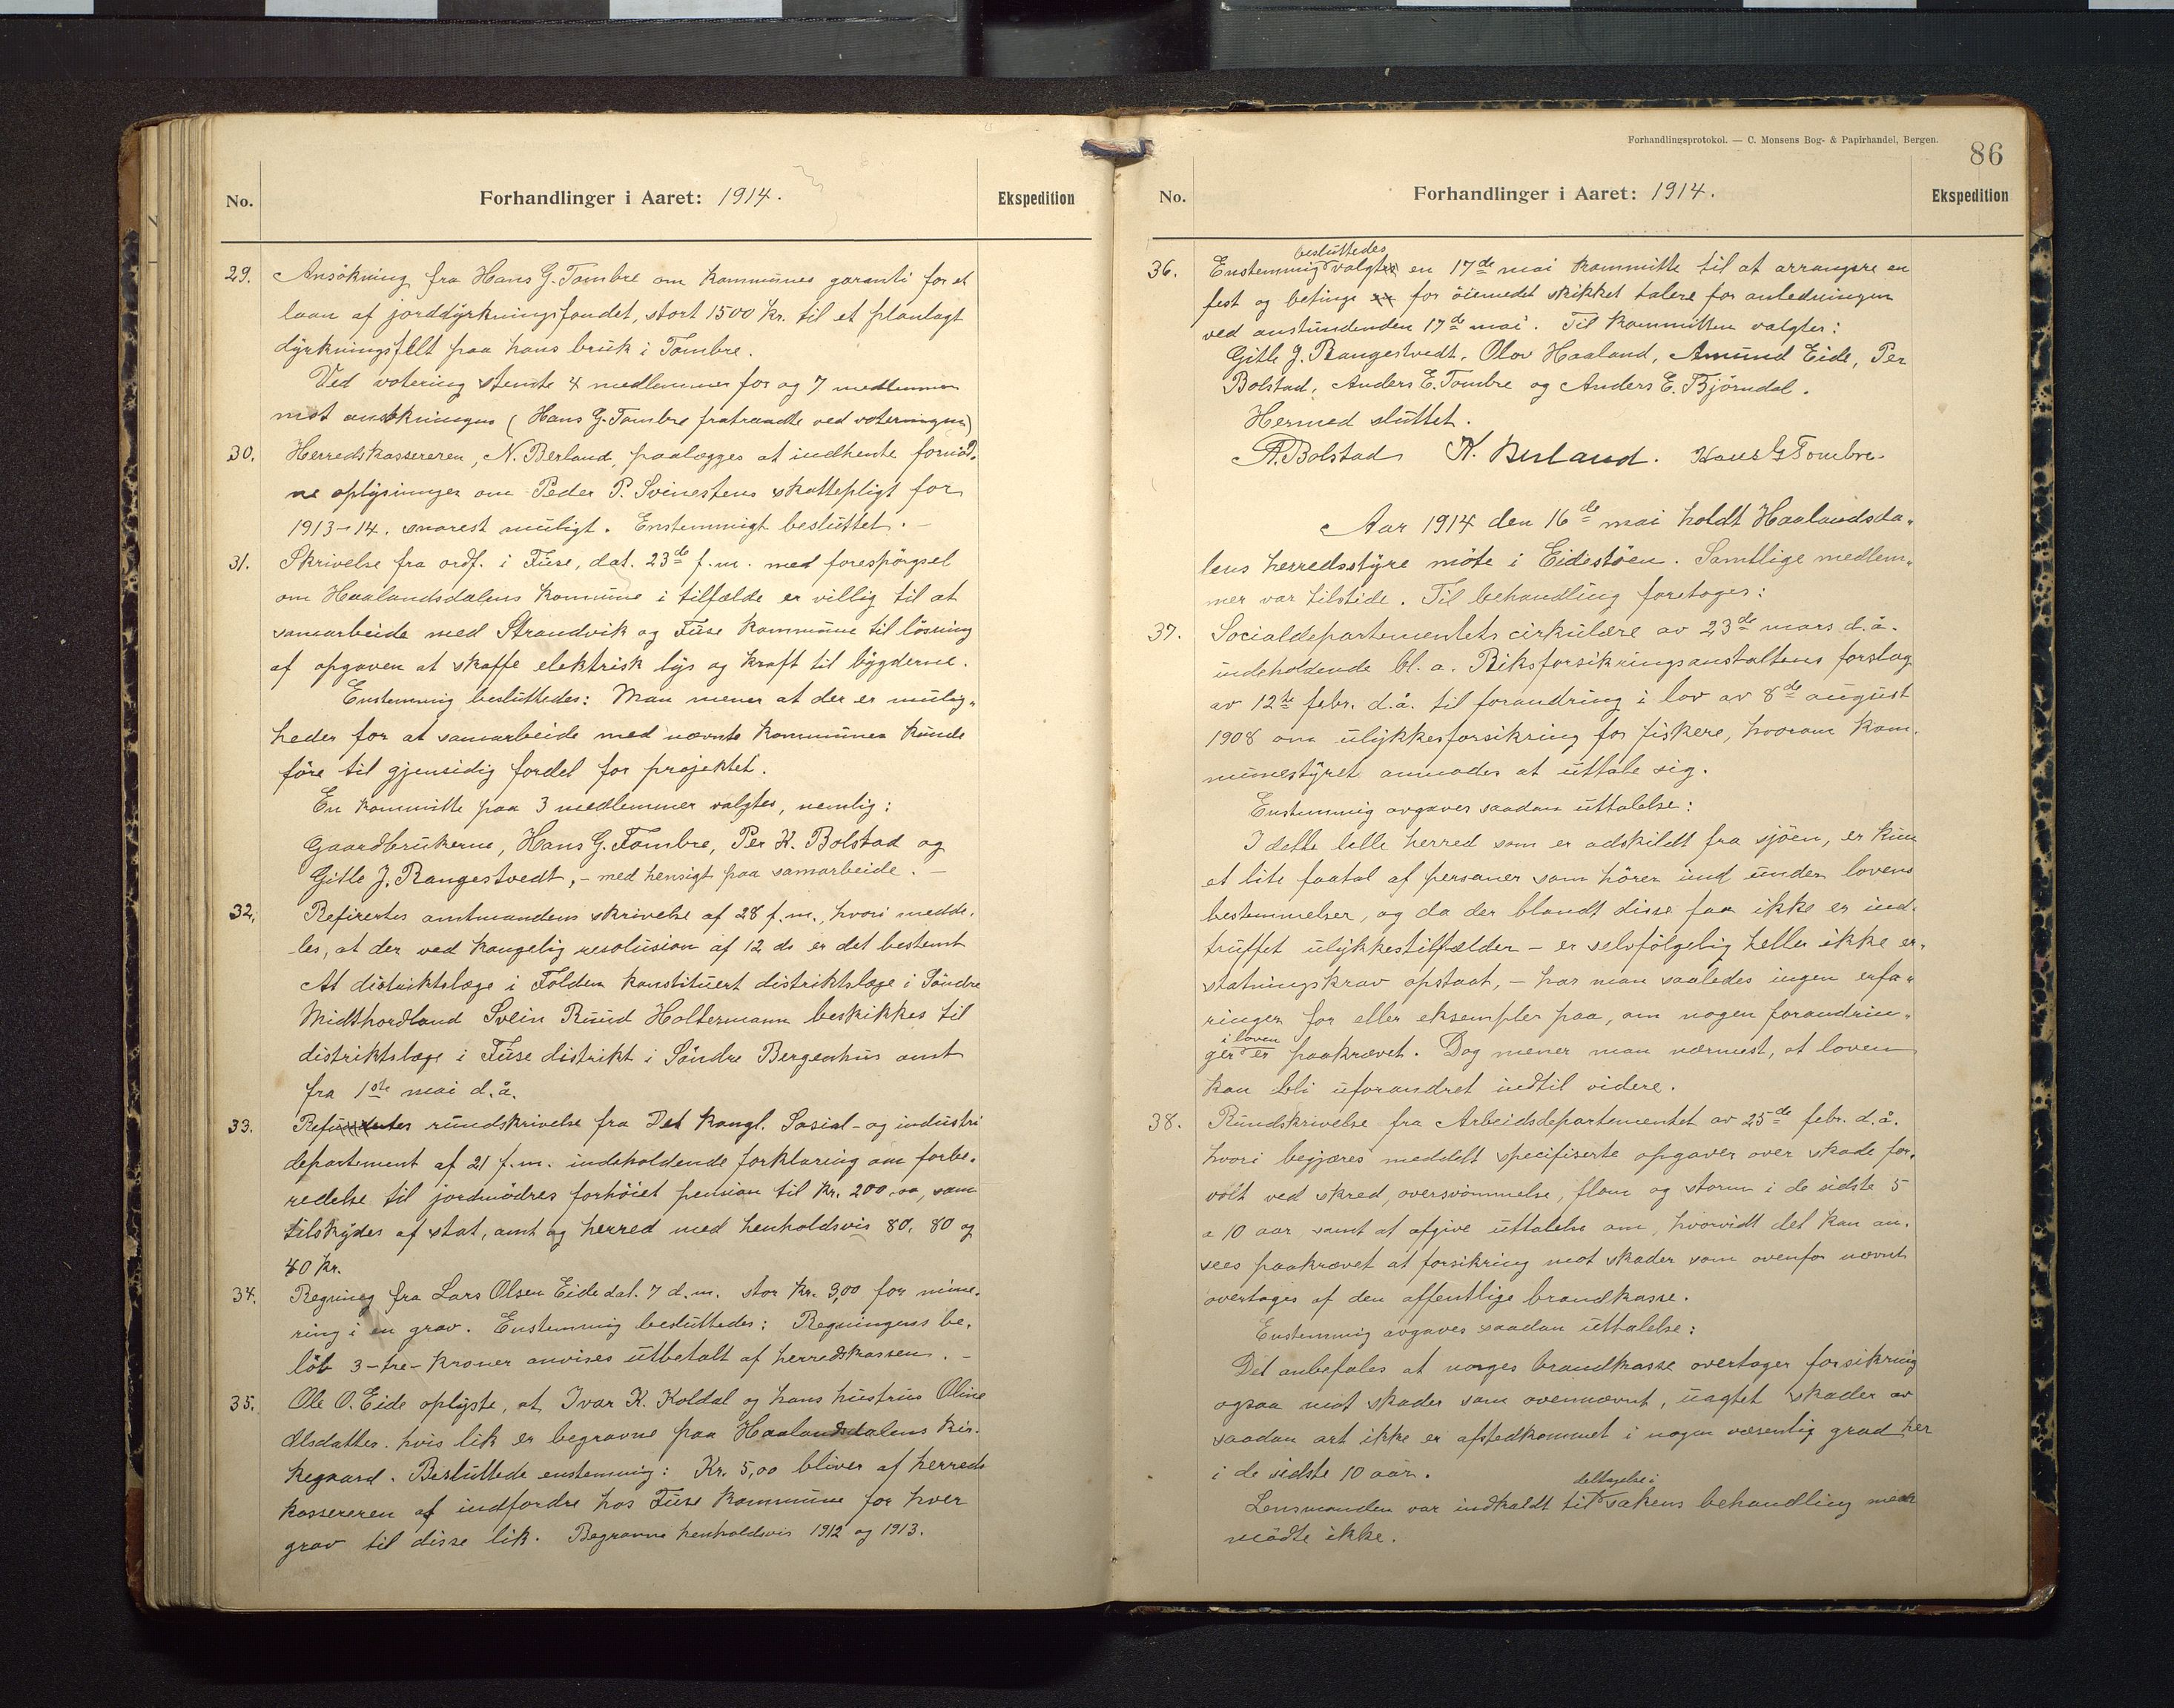 No.
Forhandlinger i Aaret: 1914.
Ekspedition
29. Ansökning fra Hans G. Tombre om kommunes garanti for et
laan af jorddyrkningsfondet, stort 1500 kr. til et planlagt
dyrkningsfelt paa hans bruk i Tombre.
Ved votering stemte 4 medlemmer for og 7 medlemmer
mot ansökningen (Hans G. Tombre fratraadte ved voteringen)
30. Herredskassereren, N. Berland, paalægges at indhente fornöd-
ne oplysninger om Peder P. Svinestens skattepligt for
1913-14. snarest muligt. Enstemmigt besluttet. -
31. Skrivelse fra ordf. i Fuse, dat. 23de f.m. med forespörgsel
om Haalandsdalens kommune i tilfælde er villig til at
samarbeide med Strandvik og Fuse kommune til lösning
af opgaven at skaffe elektrisk lys og kraft til bygderne.
Enstemmig besluttedes: Man mener at der er mulig-
heder for at samarbeide med nævnte kommuner kunde
före til gjensidig fordel for projektet.
En kommitte paa 3 medlemmer valgtes, nemlig:
Gaardbrukerne, Hans G. Tombre, Per K. Bolstad og
Gitle J. Rangestvedt, - med hensigt paa samarbeide. -
32. Refirertes amtmandens skrivelse af 28 f.m., hvori medde-
les, at der ved kongelig resolusion af 12 ds er det bestemt
At distriktslæge i Folden konstituert distriktslæge i Söndre
Midthordland Svein Ruud Holtermann beskikkes til
distriktslæge i Fuse distrikt i Söndre Bergenhus amt
fra 1ste mai d.å.
33. rundskrivelse fra Det kongl. Sosial- og industri
departement af 21 f.m. indeholdende forklaring om forbe-
redelse til jordmödres forhöiet pension til kr. 200,00, som
tilskydes af stat, amt og herred med henholdsvis 80, 80 og
40 kr.
34. Regning fra Lars Olsen Eide dat. 7 d.m. stor kr. 3,00 for mine-
ring i en grav. Enstemmig besluttedes: Regningens be-
löb 3-tre-kroner anvises utbetalt af herredskassen. -
35. Ole O. Eide oplyste, at Ivar K. Koldal og hans hustrus Oline
Olsdatter. hvis lik er begravne paa Haalandsdalens kir-
kegaard. Besluttede enstemmig: Kr. 5,00 bliver af herreds
kassereren at indfordre hos Fuse kommune for hver
grav til disse lik. Begravne henholdsvis 1912 og 1913.
Forhandlingsprotokol. — C. Monsens Bog- & Papirhandel, Bergen.
86
No.
Forhandlinger i Aaret: 1914.
Ekspedition
besluttedes
36. Enstemmig valgt en 17de mai kommitte til at arrangere en
fest og betinge for öiemedet skikket talere for anledningen
ved anstundenden 17de mai. Til kommitten valgtes:
Gitle J. Rangestvedt, Olov Haaland, Amund Eide, Per
Bolstad, Anders E. Tombre og Anders E. Björndal.
Hermed sluttet.
P. Bolstad K. Berland. Hans G Tombre.
Aar 1914 den 16de mai holdt Haalandsda-
lens herredsstyre möte i Eidestöen. Samtlige medlem-
mer var tilstede. Til behandling foretoges:
37. Socialdepartementets cirkulære av 23de mars d.å.
indeholdende bl.a. Riksforsikringsanstaltens forslag
av 12te febr. d.å. til forandring i lov av 8de august
1908 om ulykkesforsikring for fiskere, hvorom kom-
munestyret anmodes at uttale sig.
Enstemmig avgaves saadan uttalelse:
I dette lille herred som er adskildt fra sjöen, er kun
et lite faatal af personer som hörer ind under lovens
bestemmelser, og da der blandt disse faa ikke er ind-
truffet ulykkestilfælder - er selvfölgelig heller ikke er-
statningskrav opstaat, - har man saaledes ingen erfa-
ringer for eller eksempler paa, om nogen forandrin-
i loven
ger er paakrævet. Dog mener man nærmest, at loven
kan bli uforandret indtil videre.
38. Rundskrivelse fra Arbeidsdepartementet av 25de febr. d.å.
hvori begjæres meddelt specifiserte opgaver over skade for-
volt ved skred, oversvömmelse, flom og storm i de sidste 5
a 10 aar samt at afgive uttalelse om, hvorvidt det kan an-
sees paakrævet at forsikring mot skader som ovenfor nævnt
overtages af den offentlige brandkasse.
Enstemmig avgaves saadan uttalelse:
Det anbefales at norges brandkasse overtager forsikring
ogsaa mot skader som ovennævnt, uagtet skader av
saadan art ikke er afstedkommet i nogen væsentlig grad her
i de sidste 10 aar.
deltagelse i
Lensmanden var indkaldt til sakens behandling men
mödte ikke.